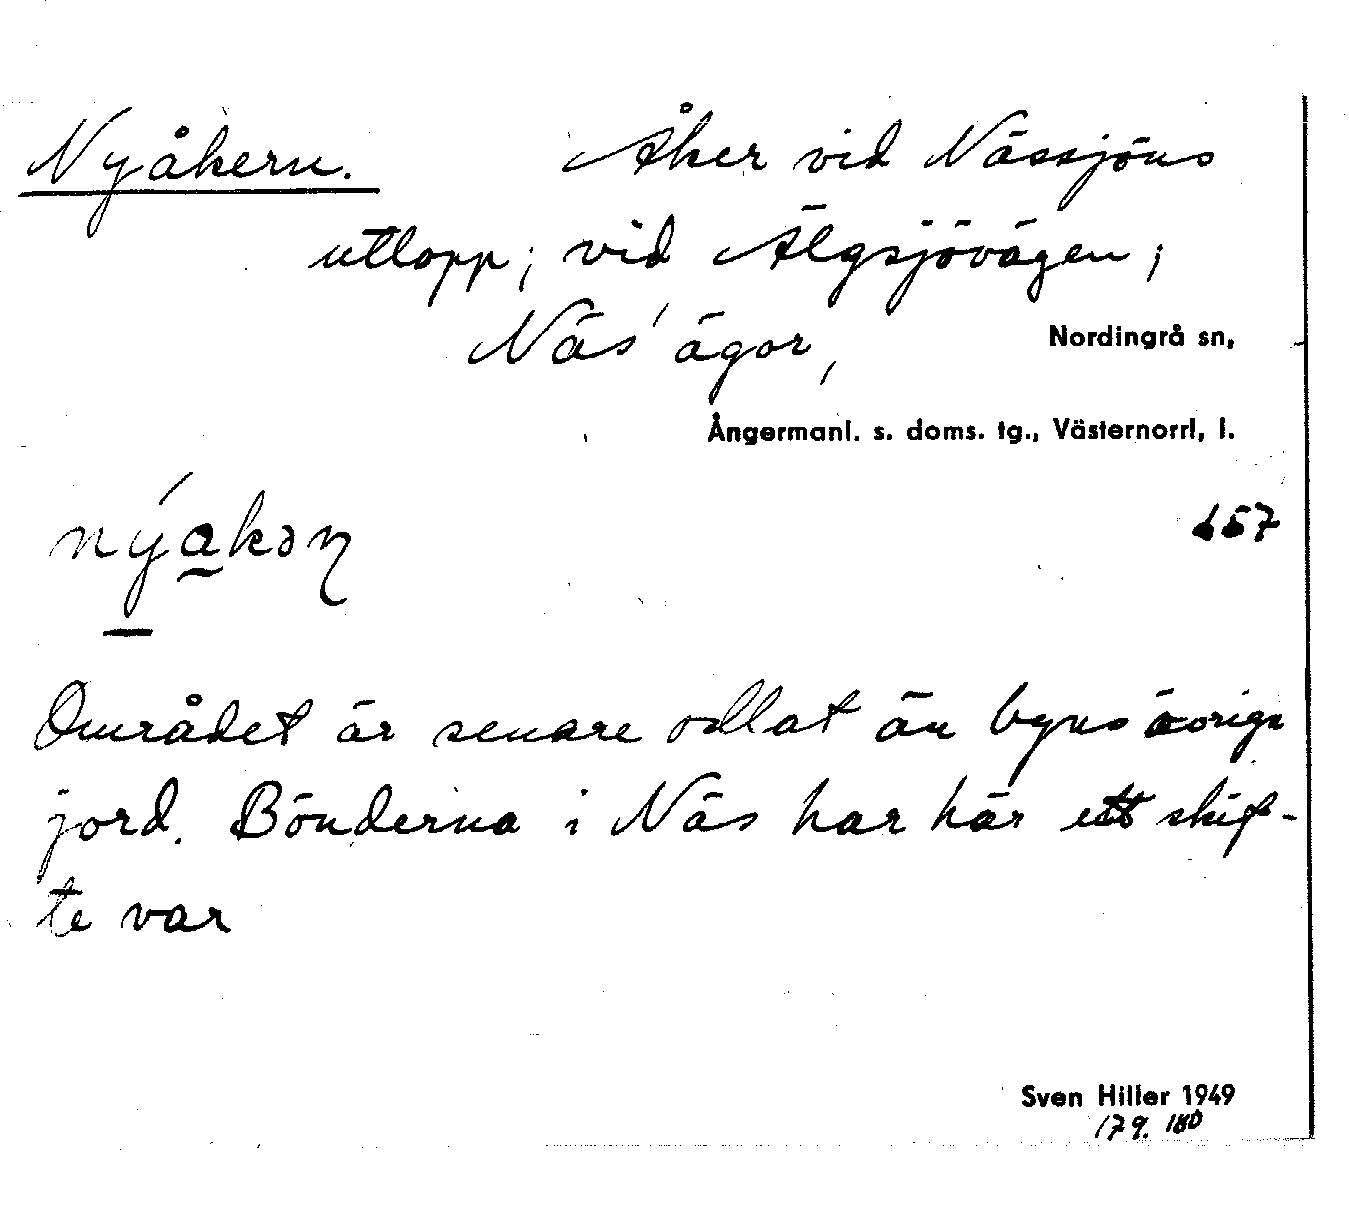 Nyåkern. Åker vid Nässjöns
utlopp; vid Älgsjövägen;
Näs' ägor,
Nordingrå sn,
Ångermanl. s. doms. tg., Västernorrl, l.
657
Området är senare odlat än byns övriga
jord. Bönderna i Näs har här ett skif-
te var
Sven Hiller 1949
179. 180